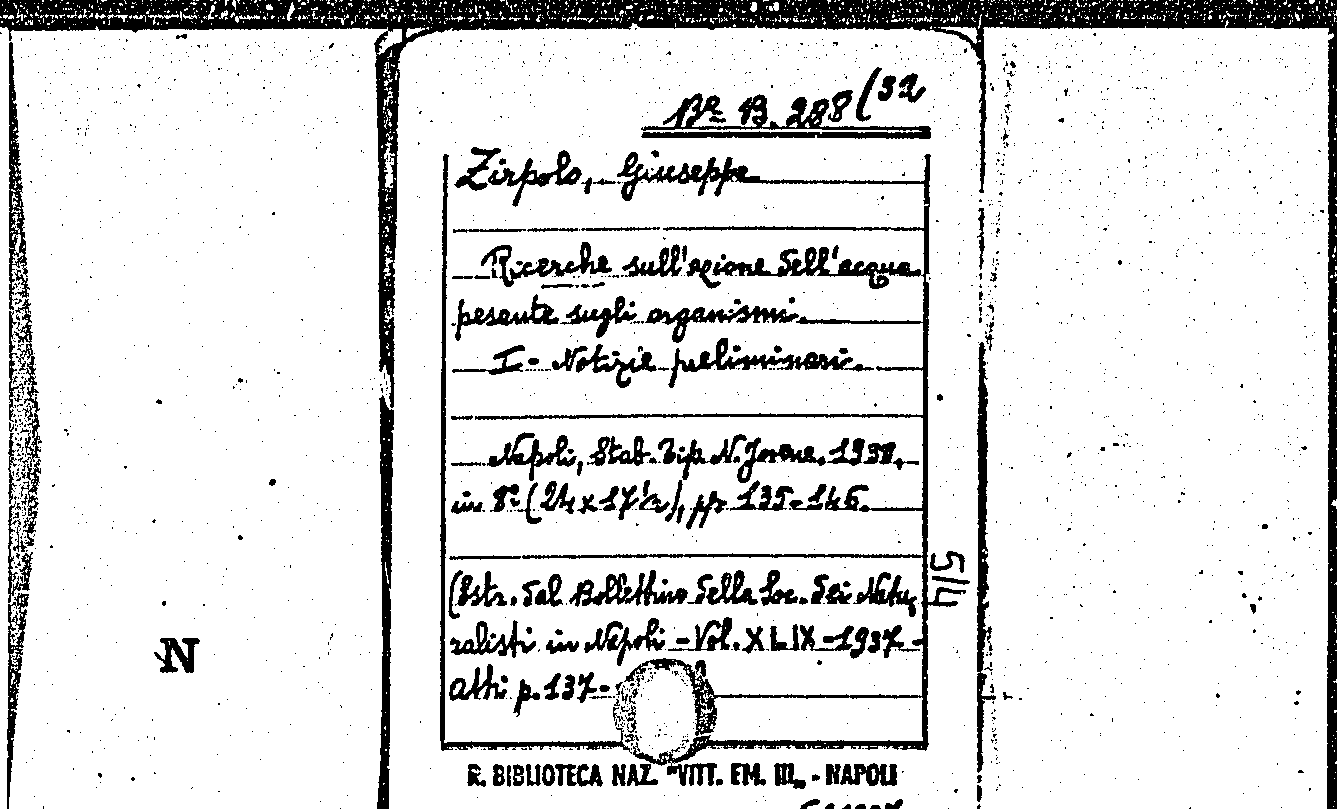 Bª B. 288 (32
Zirpolo, Giuseppe
Ricerche sull'azione dell'acqua
pesante sugli organismi.
I- Notizie preliminari.
Napoli, Stab. Tip. N. Jovene. 1938.
in 8º (24 x 17 ½), pp 135-146.
(Estr. dal Bollettino della Soc. dei Natu-
ralisti in Napoli - Vol. XLIX - 1937 -
Atti p. 137-
5/4
N
R. BIBLIOTECA NAZ. "VITT. EM. III„ - NAPOLI